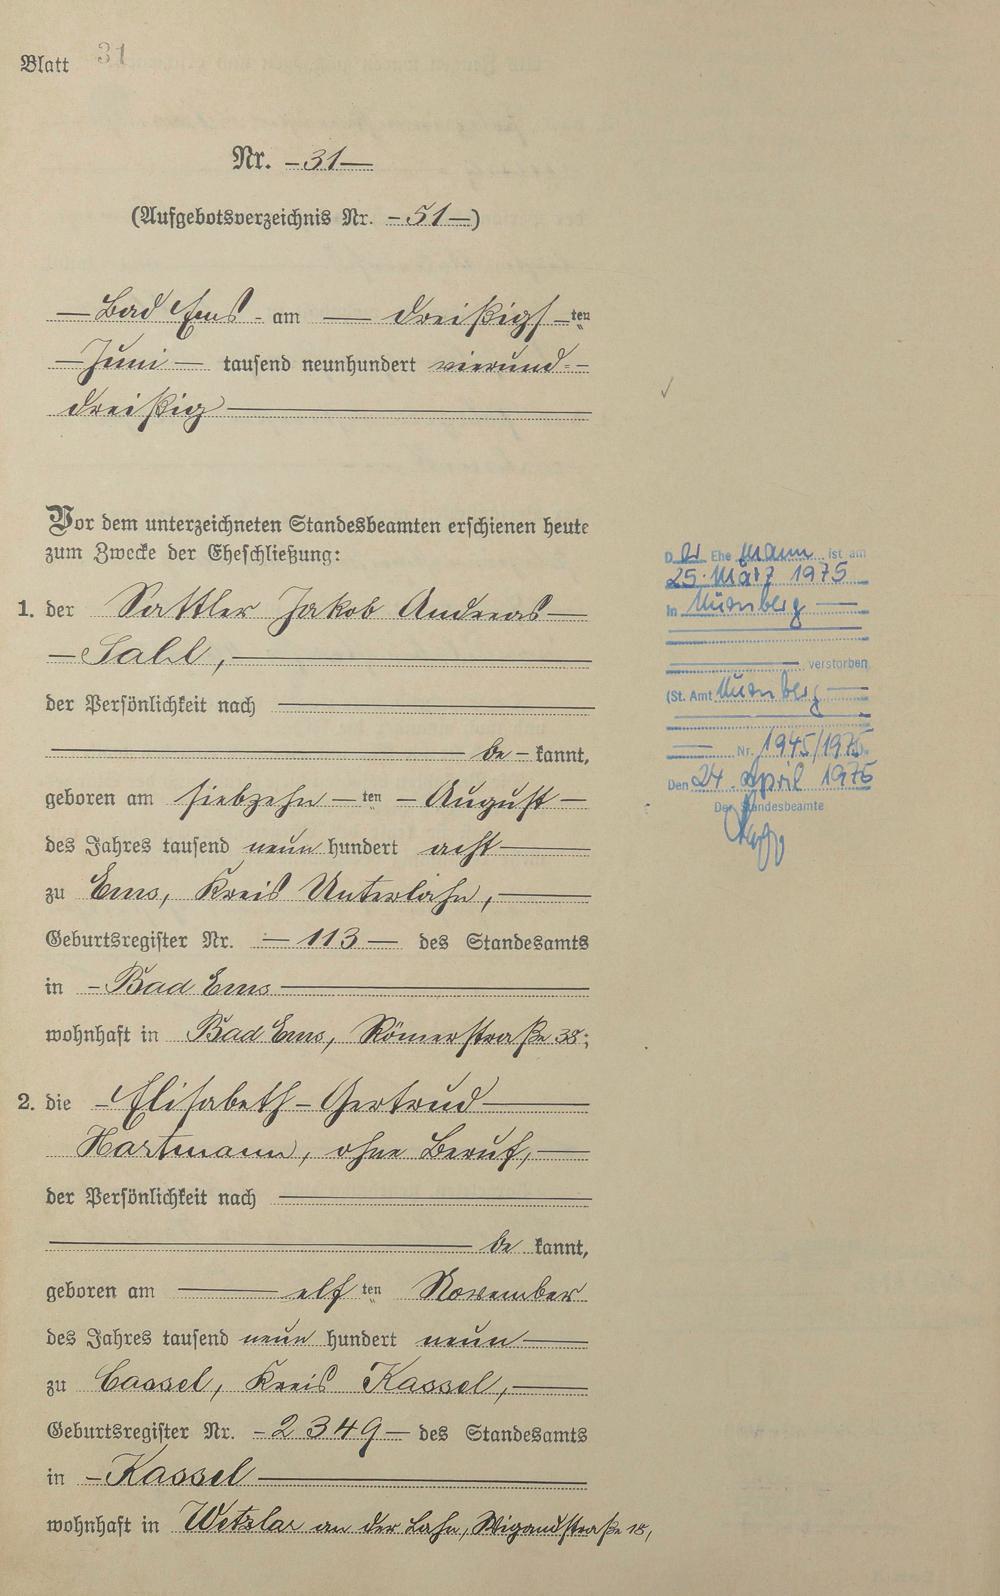 Blatt 31
Nr. — 31 —
(Aufgebotsverzeichnis Nr. — 51 —)
— Bad Ems - am — dreißigs — ten
— Juni — tausend neunhundert vierund- -
dreißig —
Vor dem unterzeichneten Standesbeamten erschienen heute
zum Zwecke der Eheschließung:
1. der Sattler Jakob Andreas —
— Sahl, —
der Persönlichkeit nach —
— be — kannt,
geboren am siebzehn — ten — August —
des Jahres tausend neun hundert acht —
zu Ems, Kreis Unterlahn, —
Geburtsregister Nr. — 113 — des Standesamts
in - Bad Ems —
wohnhaft in Bad Ems, Römerstraße 38;
2. die - Elisabeth - Gertrud —
Hartmann, ohne Beruf, —
der Persönlichkeit nach —
— be kannt,
geboren am — elf ten November
des Jahres tausend neun hundert neun —
zu Cassel, Kreis Kassel, —
Geburtsregister Nr. - 2349 — des Standesamts
in - Kassel —
wohnhaft in Wetzlar an der Lahn, Wigandstraße 18,
D er Ehe mann ist am
25. März 1975
in Nürnberg —
— verstorben
(St. Amt Nürnberg —
— Nr. 1945/1975.
Den 24. April 1975
Der Standesbeamte